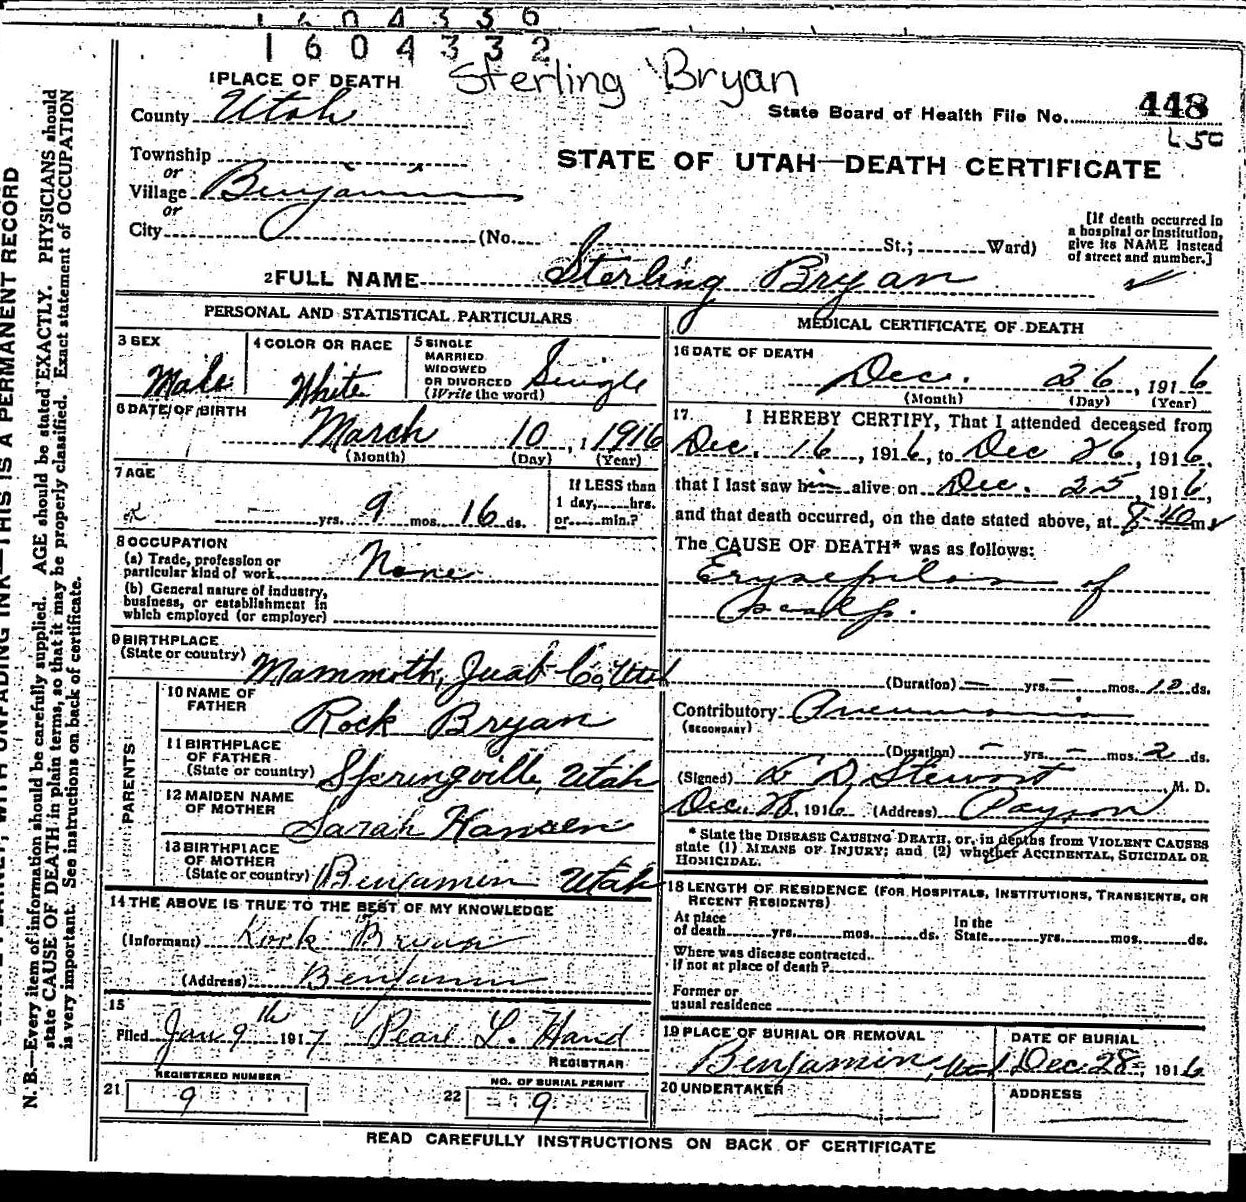 1604336
1604332
1 PLACE OF DEATH Sterling Bryan
County Utah
State Board of Health File No. 448
Township
or
Village Benjamin
STATE OF UTAH—DEATH CERTIFICATE
or
City (No. St.; Ward)
[If death occurred in a hospital or institution, give its NAME instead of street and number.]
2 FULL NAME Sterling Bryan
PERSONAL AND STATISTICAL PARTICULARS
3 SEX Male
4 COLOR OR RACE White
5 SINGLE MARRIED WIDOWED OR DIVORCED (Write the word) Single
6 DATE OF BIRTH March 10, 1916
(Month) (Day) (Year)
7 AGE
— yrs. 9 mos. 16 ds.
If LESS than 1 day, hrs. or min.?
8 OCCUPATION
(a) Trade, profession or particular kind of work None
(b) General nature of industry, business, or establishment in which employed (or employer)
9 BIRTHPLACE
(State or country) Mammoth, Juab Co, Utah
PARENTS
10 NAME OF FATHER Rock Bryan
11 BIRTHPLACE OF FATHER (State or country) Springville, Utah
12 MAIDEN NAME OF MOTHER Sarah Hansen
13 BIRTHPLACE OF MOTHER (State or country) Benjamin Utah
14 THE ABOVE IS TRUE TO THE BEST OF MY KNOWLEDGE
(Informant) Rock Bryan
(Address) Benjamin
15
Filed Jan 9th 1917 Pearl L. Hand
REGISTRAR
21 REGISTERED NUMBER 9
22 NO. OF BURIAL PERMIT 9
MEDICAL CERTIFICATE OF DEATH
16 DATE OF DEATH
Dec. 26, 1916
(Month) (Day) (Year)
17. I HEREBY CERTIFY, That I attended deceased from
Dec. 16, 1916, to Dec 26, 1916.
that I last saw him alive on Dec. 25, 1916,
and that death occurred, on the date stated above, at 8-40 m
The CAUSE OF DEATH* was as follows:
Erysepilas of
scalp.
(Duration) — yrs. — mos. 10 ds.
Contributory Pneumonia
(SECONDARY)
(Duration) — yrs. — mos. 2 ds.
(Signed) L D Stewart, M. D.
Dec. 28, 1916 (Address) Payson
* State the DISEASE CAUSING DEATH, or, in deaths from VIOLENT CAUSES
state (1) MEANS OF INJURY; and (2) whether ACCIDENTAL, SUICIDAL OR
HOMICIDAL.
18 LENGTH OF RESIDENCE (FOR HOSPITALS, INSTITUTIONS, TRANSIENTS, OR
RECENT RESIDENTS)
At place of death yrs. mos. ds. In the State yrs. mos. ds.
Where was disease contracted.
If not at place of death?
Former or
usual residence
19 PLACE OF BURIAL OR REMOVAL
Benjamin, Utah
DATE OF BURIAL
Dec. 28, 1916
20 UNDERTAKER
ADDRESS
READ CAREFULLY INSTRUCTIONS ON BACK OF CERTIFICATE
THIS IS A PERMANENT RECORD
N. B.—Every item of information should be carefully supplied. AGE should be stated EXACTLY. PHYSICIANS should
state CAUSE OF DEATH in plain terms, so that it may be properly classified. Exact statement of OCCUPATION
is very important. See instructions on back of certificate.